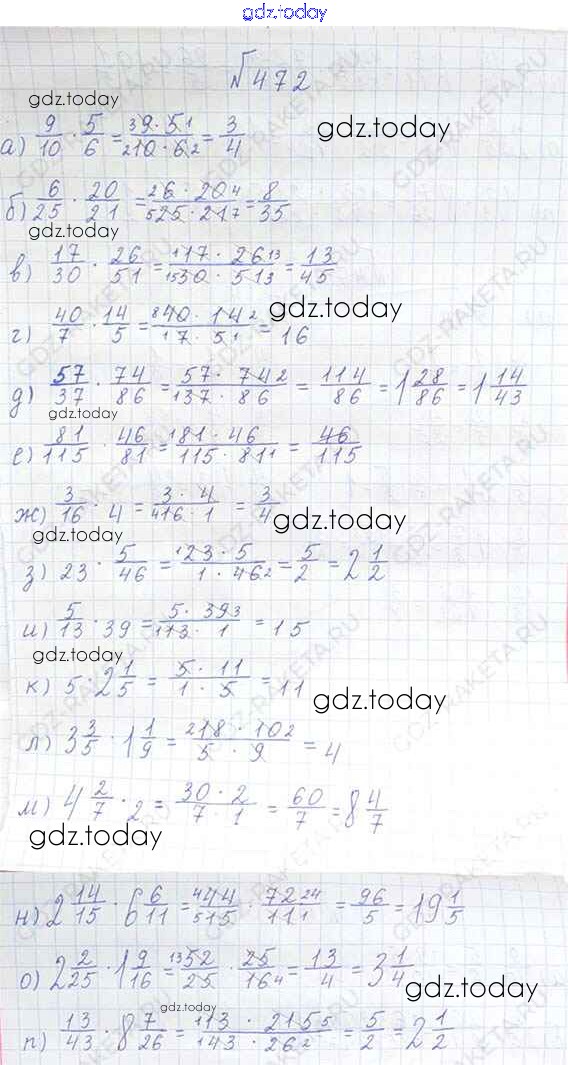 gdz.today
№472
gdz.today
а) 9/10 · 5/6 = 39·51/210·62 = 3/4
gdz.today
б) 6/25 · 20/21 = 26·204/525·217 = 8/35
gdz.today
в) 17/30 · 26/51 = 117·2613/1530·513 = 13/45
г) 40/7 · 14/5 = 840·142/17·51 = 16
gdz.today
д) 57/37 · 74/86 = 57·742/137·86 = 114/86 = 1 28/86 = 1 14/43
gdz.today
е) 81/115 · 46/81 = 181·46/115·811 = 46/115
ж) 3/16 · 4 = 3·4/416·1 = 3/4
gdz.today
gdz.today
з) 23 · 5/46 = 123·5/1·462 = 5/2 = 2 1/2
и) 5/13 · 39 = 5·393/113·1 = 15
gdz.today
к) 5 · 2 1/5 = 5·11/1·5 = 11
gdz.today
л) 3 3/5 · 1 1/9 = 218·102/5·9 = 4
м) 4 2/7 · 2 = 30·2/7·1 = 60/7 = 8 4/7
gdz.today
н) 2 14/15 · 6 6/11 = 444/515 · 7224/111 = 96/5 = 19 1/5
о) 2 2/25 · 1 9/16 = 1352/25 · 25/164 = 13/4 = 3 1/4
gdz.today
gdz.today
п) 13/43 · 8 7/26 = 113·2155/143·262 = 5/2 = 2 1/2